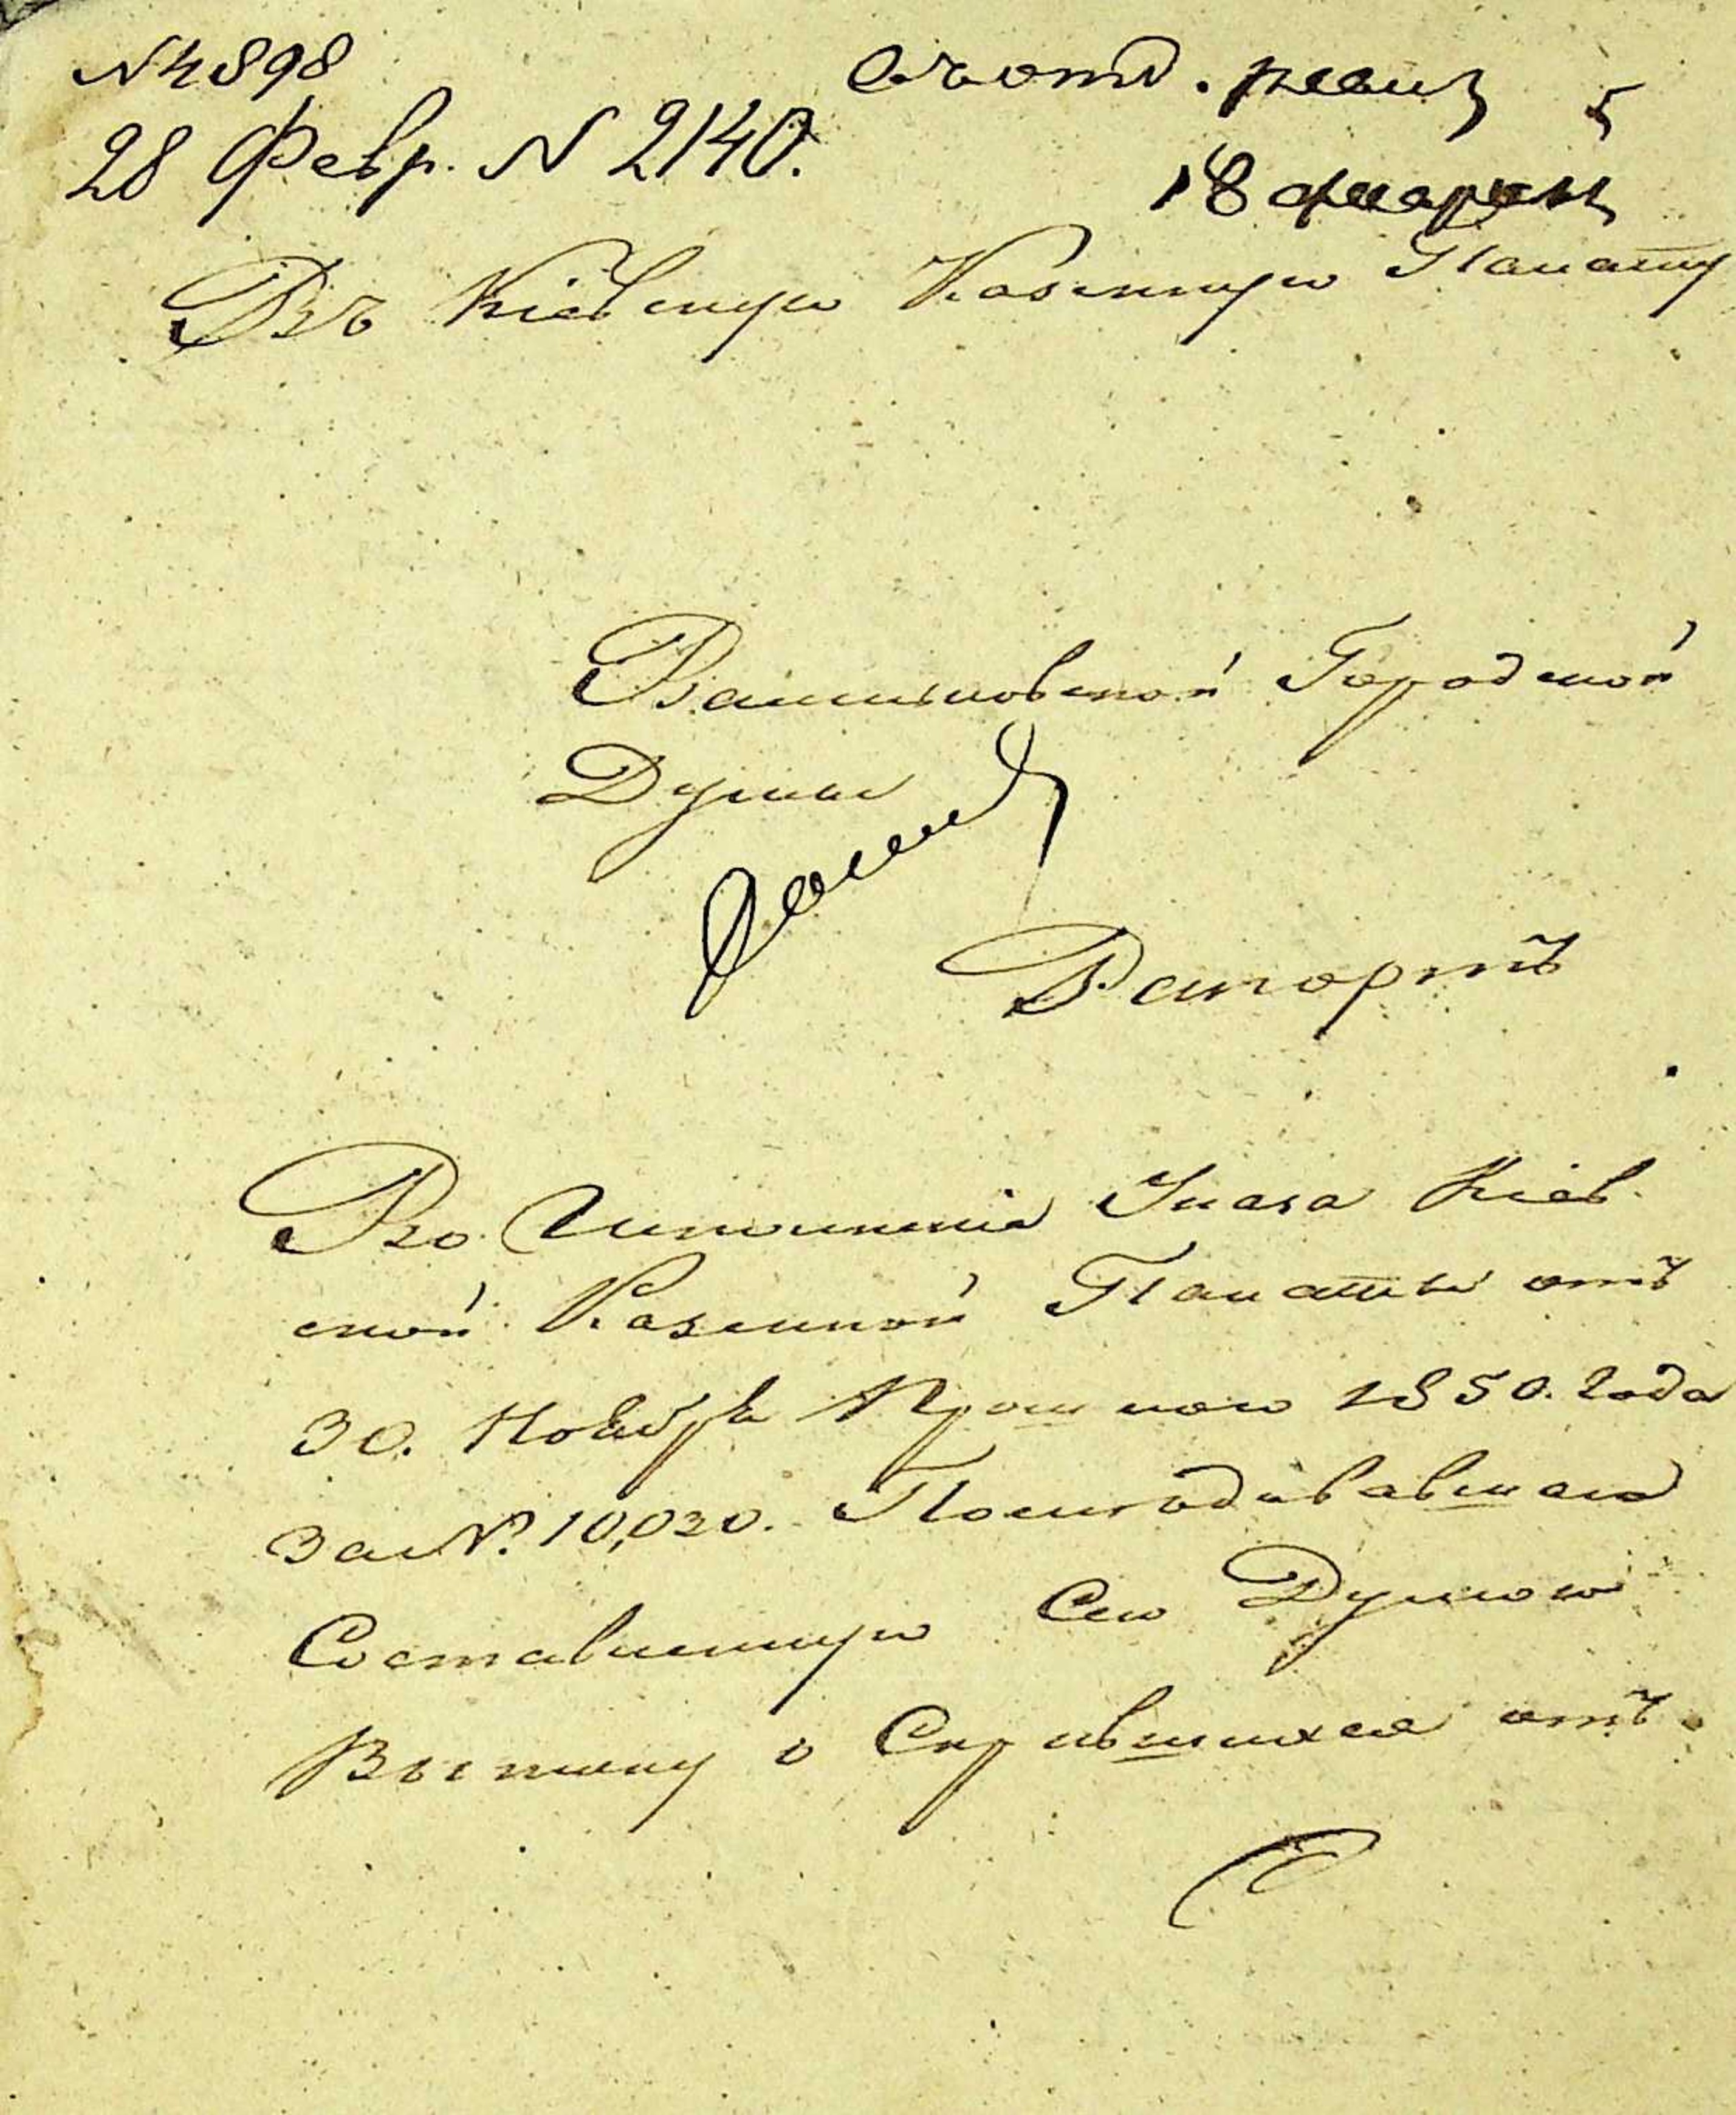 № 4898
28 Февр. N 2140.
18 февраля
Въ Кіевскую Казенную Палату
Васильковской Городской
Думы
Рапортъ
Во Исполненіе Указа Кіев-
ской Казенной Палаты отъ
30. Ноября Прошлого 1850. года
За № 10,030. Последовавшаго
Составленную Сею Думою
Выписку о Скрывшихся отъ